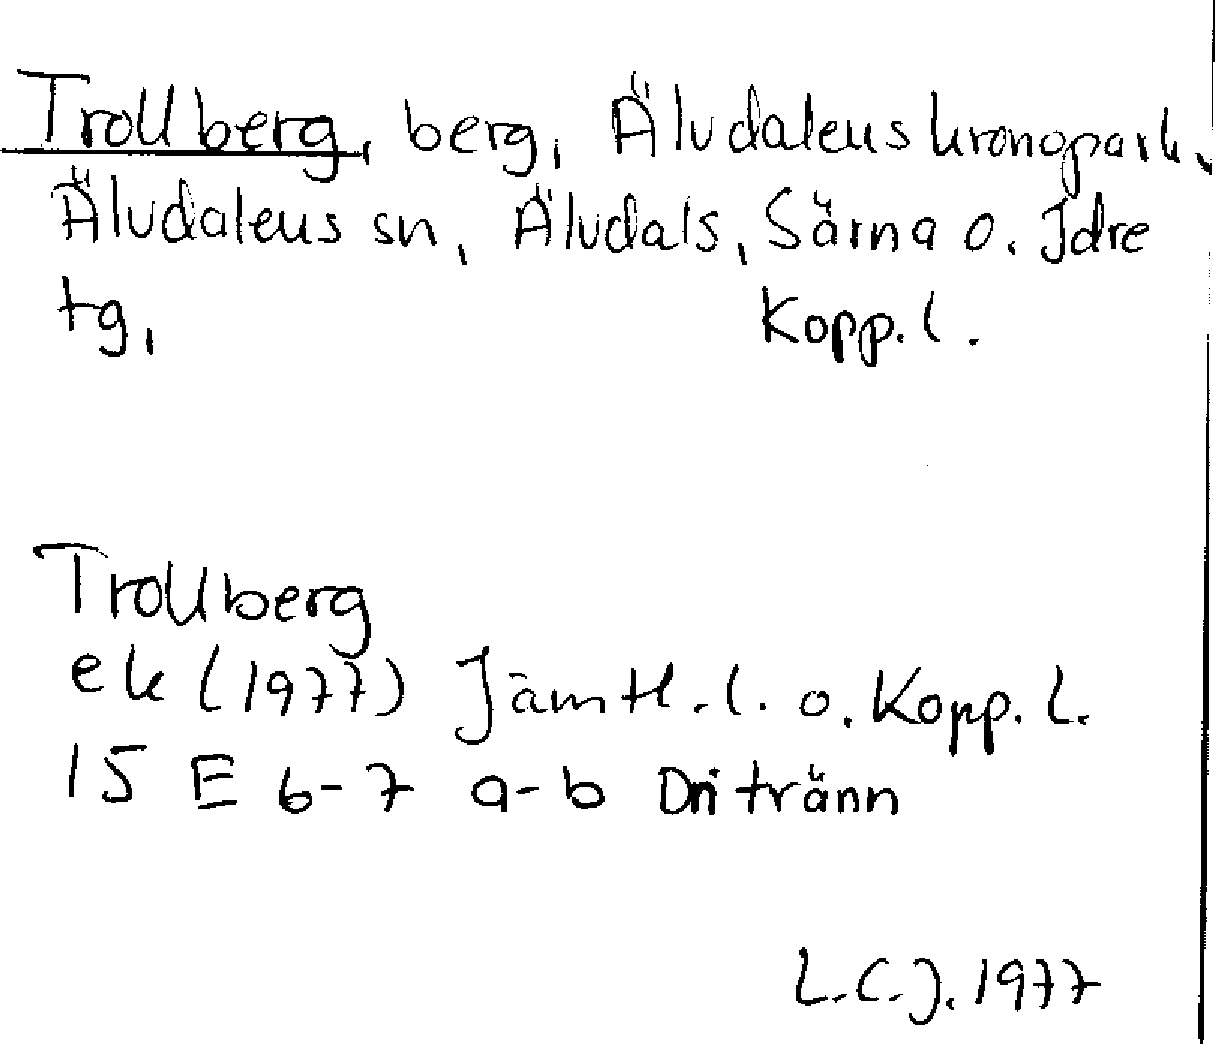 Trollberg, berg, Älvdalens kronopark,
Älvdalens sn, Älvdals, Särna o. Idre
tg,
Kopp. l.
Trollberg
ek (1977) Jämtl. l. o. Kopp. l.
15 E 6-7 a-b Dritränn
L.C.J. 1977